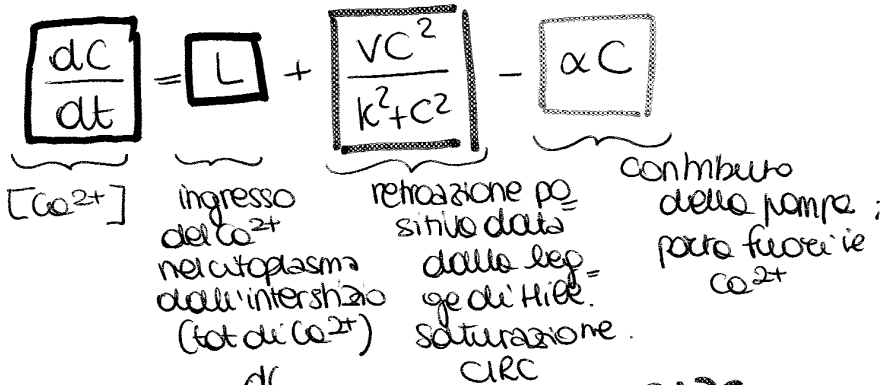 dC/dt = L + VC²/(K²+C²) - αC
[Ca²⁺]
ingresso
del Ca²⁺
nel citoplasma
dall'interstizio
(tot di Ca²⁺)
retroazione po=
sitiva data
dalla leg=
ge di Hill.
saturazione.
CIRC
contributo
della pompa;
porta fuori il
Ca²⁺
dC